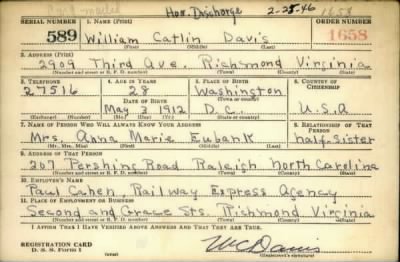 Hon Discharge 2-25-46 1658
SERIAL NUMBER 1. NAME (Print) ORDER NUMBER
589 William Catlin Davis 1658
(First) (Middle) (Last)
2. ADDRESS (Print)
2909 Third Ave. Richmond Virginia
(Number and street or R. F. D. number) (Town) (County) (State)
3. TELEPHONE 4. AGE IN YEARS 5. PLACE OF BIRTH 6. COUNTRY OF CITIZENSHIP
27516 28 Washington
DATE OF BIRTH (Town or county)
May 3 1912 D.C. U.S.A
(Exchange) (Number) (Mo.) (Day) (Yr.) (State or country)
7. NAME OF PERSON WHO WILL ALWAYS KNOW YOUR ADDRESS 8. RELATIONSHIP OF THAT PERSON
Mrs. Anna Marie Eubank half-Sister
(Mr., Mrs., Miss) (First) (Middle) (Last)
9. ADDRESS OF THAT PERSON
207 Pershing Road Raleigh North Carolina
(Number and street or R. F. D. number) (Town) (County) (State)
10. EMPLOYER'S NAME
Paul Cahen, Railway Express Agency
11. PLACE OF EMPLOYMENT OR BUSINESS
Second and Grace Sts. Richmond Virginia
(Number and street or R. F. D. number) (Town) (County) (State)
I AFFIRM THAT I HAVE VERIFIED ABOVE ANSWERS AND THAT THEY ARE TRUE.
REGISTRATION CARD
D. S. S. Form 1 WCDavis
(Registrant's signature)